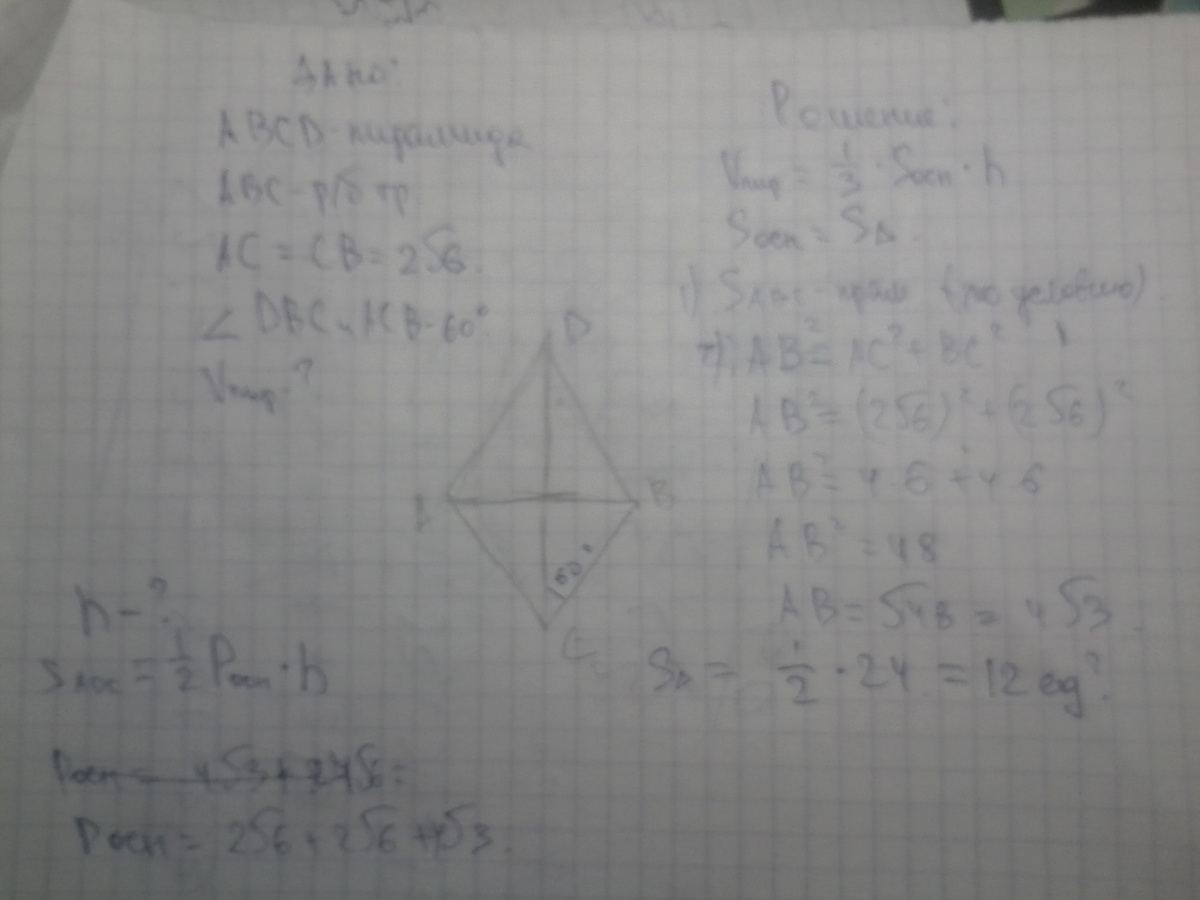 Дано:
ABCD-пирамида
ABC-р/б тр
AC = CB = 2√6.
∠ DBC и ACB-60°
Vпир-?
Решение:
Vпир = 1/3 · Sосн · h
Sосн = S∆.
1) (по условию)
AB² = AC² + BC²
AB² = (2√6)² + (2√6)²
AB² = 4·6 + 4·6
AB² = 48
AB = √48 = 4√3.
S∆ = 1/2 · 24 = 12 ед².
D
A
B
60°
C
h - ?
= 1/2 Pосн · h
Pосн = 2√6 + 2√6 + 4√3.